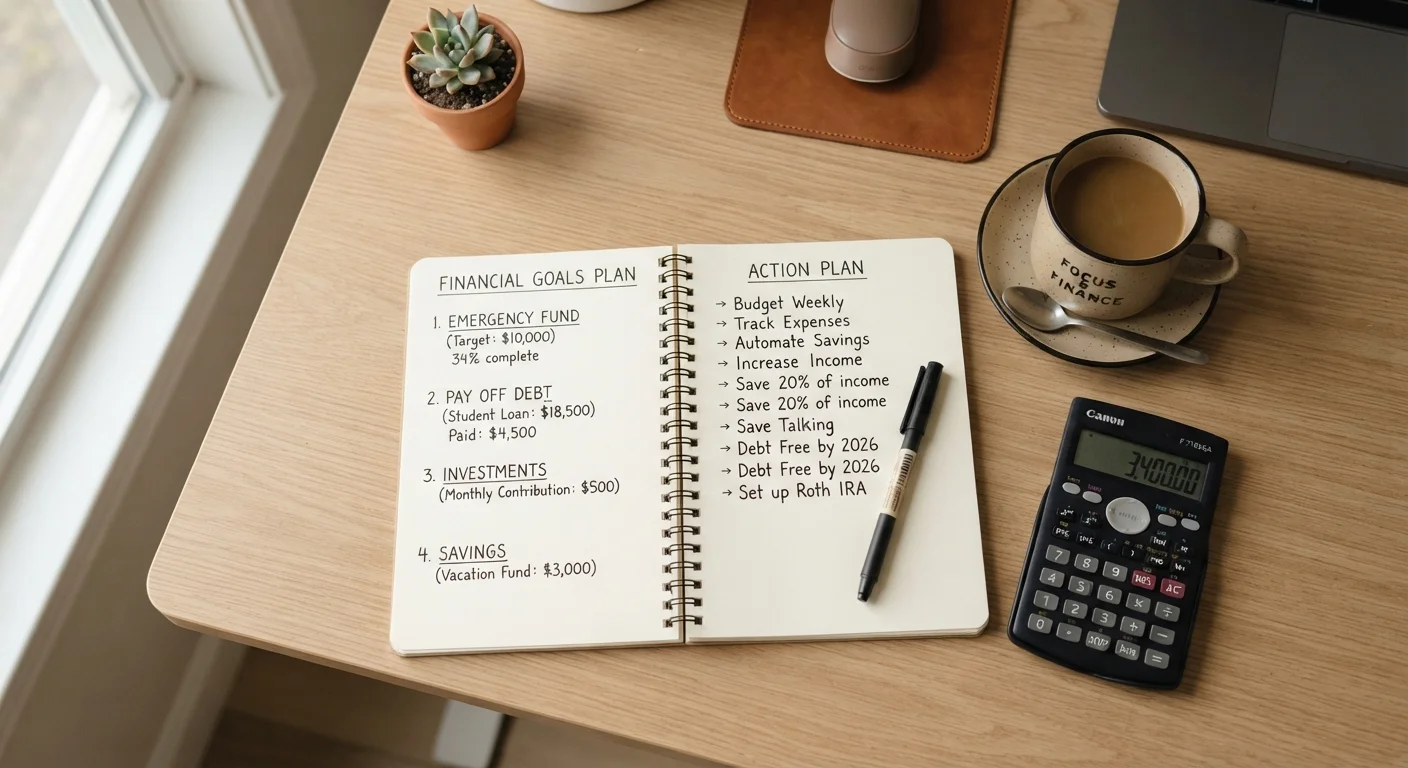 FINANCIAL GOALS PLAN
1. EMERGENCY FUND
(Target: $10,000)
34% complete
2. PAY OFF DEBT
(Student Loan: $18,500)
Paid: $4,500
3. INVESTMENTS
(Monthly Contribution: $500)
4. SAVINGS
(Vacation Fund: $3,000)
ACTION PLAN
→ Budget Weekly
→ Track Expenses
→ Automate Savings
→ Increase Income
→ Save 20% of income
→ Save 20% of income
→ Save Talking
→ Debt Free by 2026
→ Debt Free by 2026
→ Set up Roth IRA
FOCUS
&
FINANCE
Canon
3,400.00
7 8 9
4 5 6
1 2 3 + −
0 . =